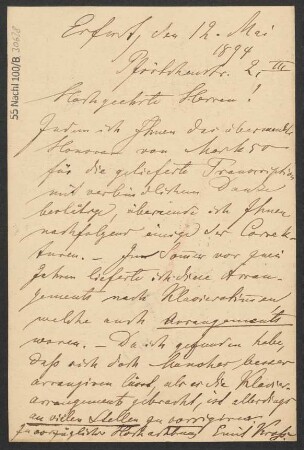 55 Nachl 100/B
Erfurt, den 12. Mai
1894
Pförtchenstr. 2, III
Hochgeehrte Herren!
Indem ich Ihnen das übersandte
Honorar von Mark 50
für die gelieferte Transcription
mit verbindlichstem Danke
bestätige, übersende ich Ihnen
nachfolgend einige der Correk-
turen. – Im Sommer vor zwei
Jahren lieferte ich diese Arran-
gements nach Klavierskizzen
welche auch Arrangements
waren. – Da ich gefunden habe,
daß sich doch Manches besser
arrangiren lässt, als es die Klavier-
arrangements gebracht, ist allerdings
an vielen Stellen zu corrigiren.
In vorzüglicher Hochachtung Emil